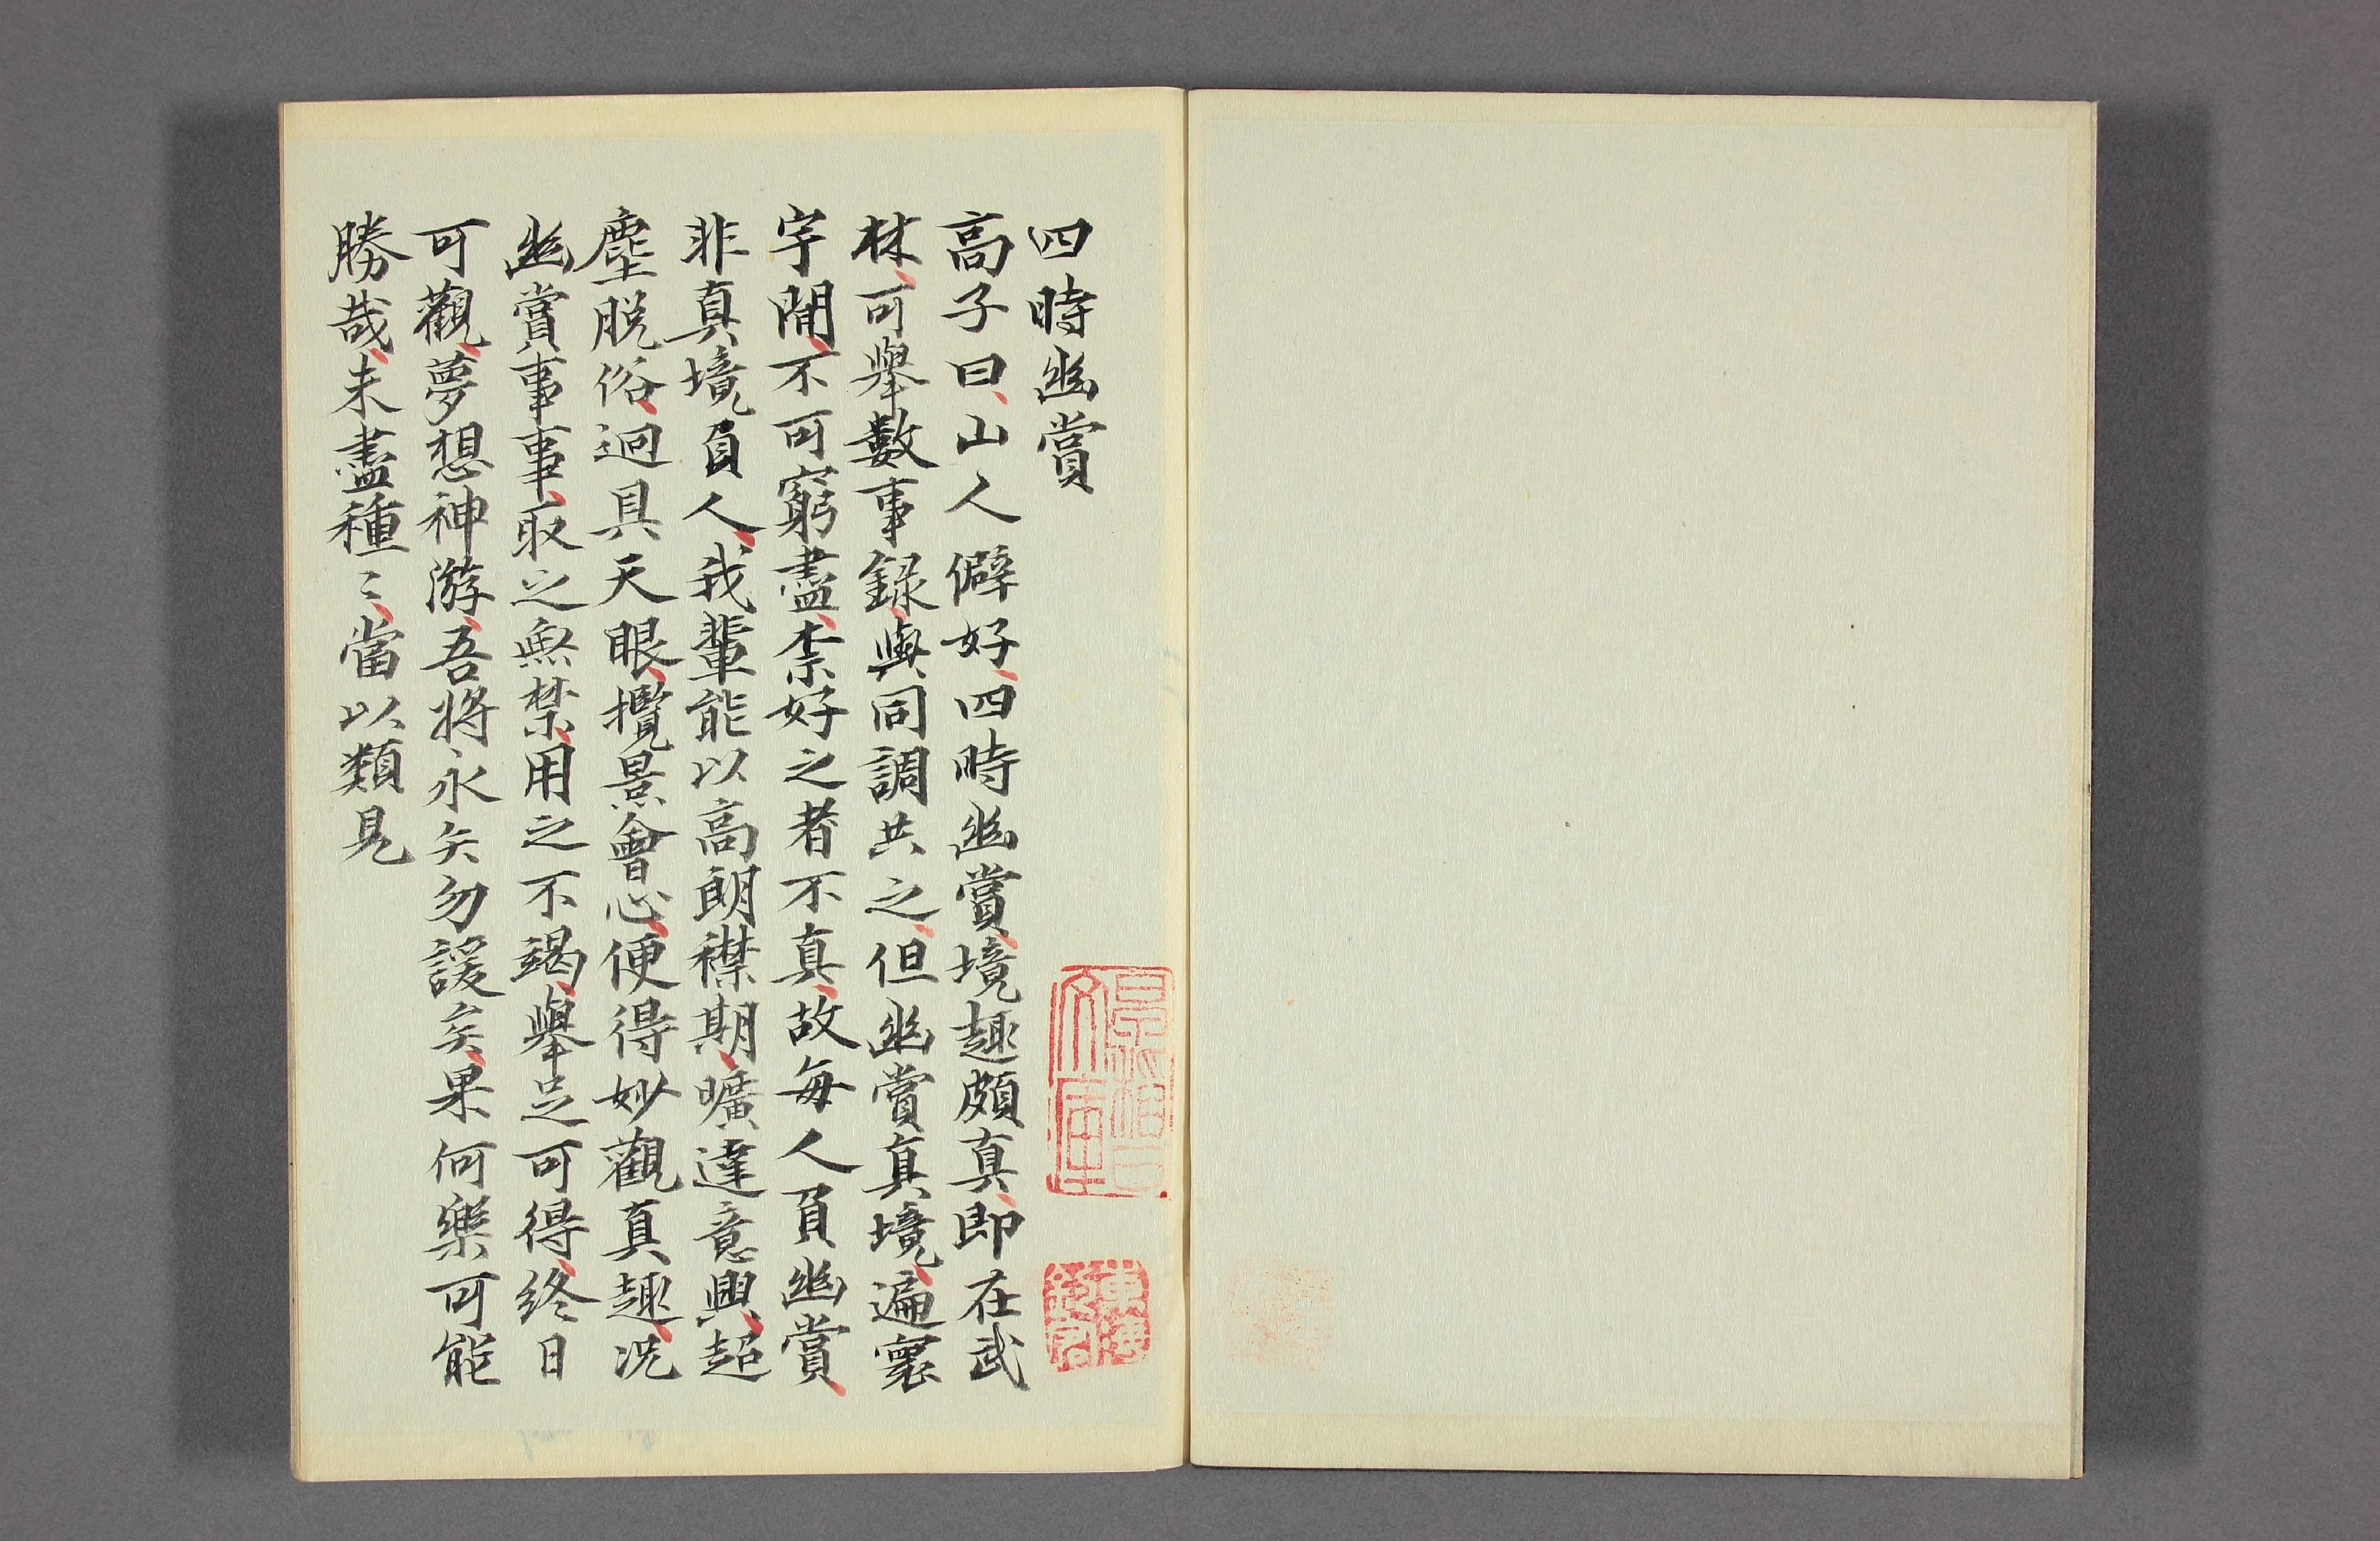 四時幽賞
高子曰、山人僻好、四時幽賞、境趣頗真、即在武
林、可舉數事録、與同調共之、但幽賞真境、遍寰
宇間、不可窮盡、柰好之者不真、故每人負幽賞、
非真境負人、我輩能以高朗襟期、曠達意興、超
塵脱俗、迥具天眼、攬景會心、便得妙觀真趣、况
幽賞事事、取之無禁、用之不竭、舉足可得、終日
可觀、夢想神游、吾將永矢勿諼矣、果何樂可能
勝哉、未盡種〻、當以類見